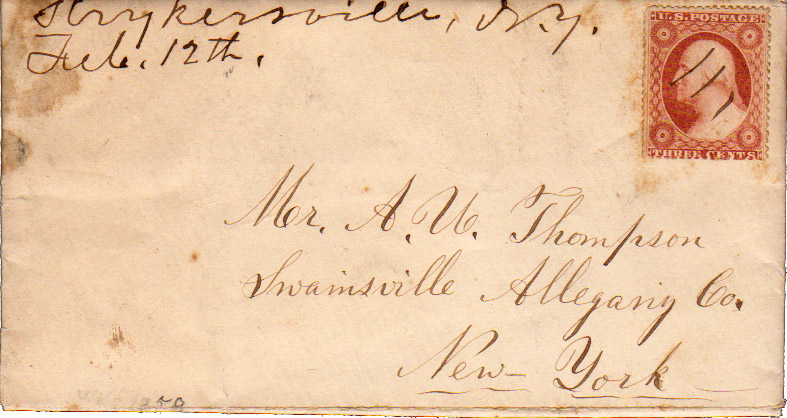 Strykersville, N.Y.
Feb. 12th.
U.S. POSTAGE
THREE CENTS
Mr. A. U. Thompson
Swainsville Allegany Co.
New York